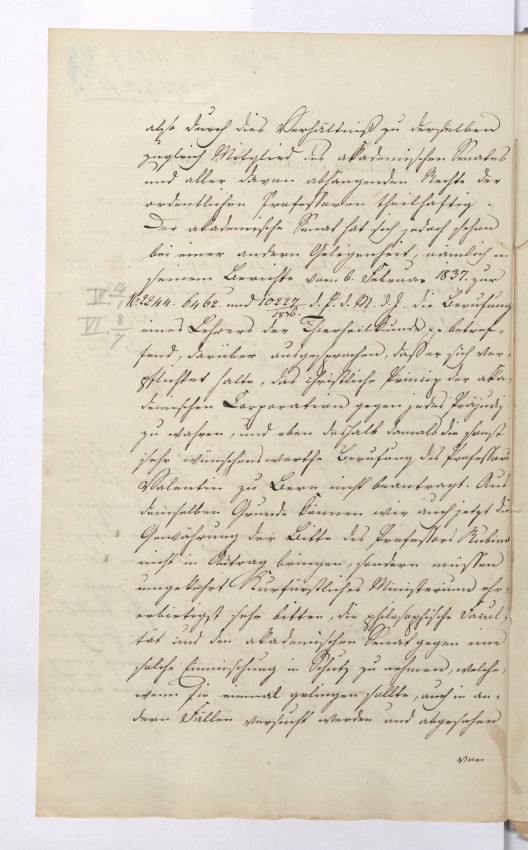 also durch dies Verhältniß zu derselben
zugleich Mitglied des akademischen Senates
und aller davon abhangenden Rechte der
ordentlichen Professoren theilhaftig.
Der akademische Senat hat sich jedoch schon
bei einer andern Gelegenheit, nämlich in
seinem Berichte vom 6. Februar 1837. zur
VI 14/1
N. 2244. 6462. und 10227/1836. d. P. d. M. d. J. die Berufung
VI 8/7
eines Lehrers der Thierheilkunde betref-
fend, darüber ausgesprochen, daß er sich ver-
pflichtet halte, das christliche Princip der aka-
demischen Corporation gegen jedes Präjudiz
zu wahren, und eben deshalb damals die sonst
sehr wünschenswerthe Berufung des Professors
Valentin zu Bern nicht beantragt. Aus
demselben Grunde können wir auch jetzt die
Gewährung der Bitte des Professors Rubino
nicht in Antrag bringen, sondern müssen
umgekehrt Kurfürstliches Ministerium ehr-
erbietigst sehr bitten, die philosophische Facul-
tät und den akademischen Senat gegen eine
solche Einmischung in Schutz zu nehmen, welche,
wenn sie einmal gelingen sollte, auch in an-
dern Fällen versucht werden und abgesehen
von